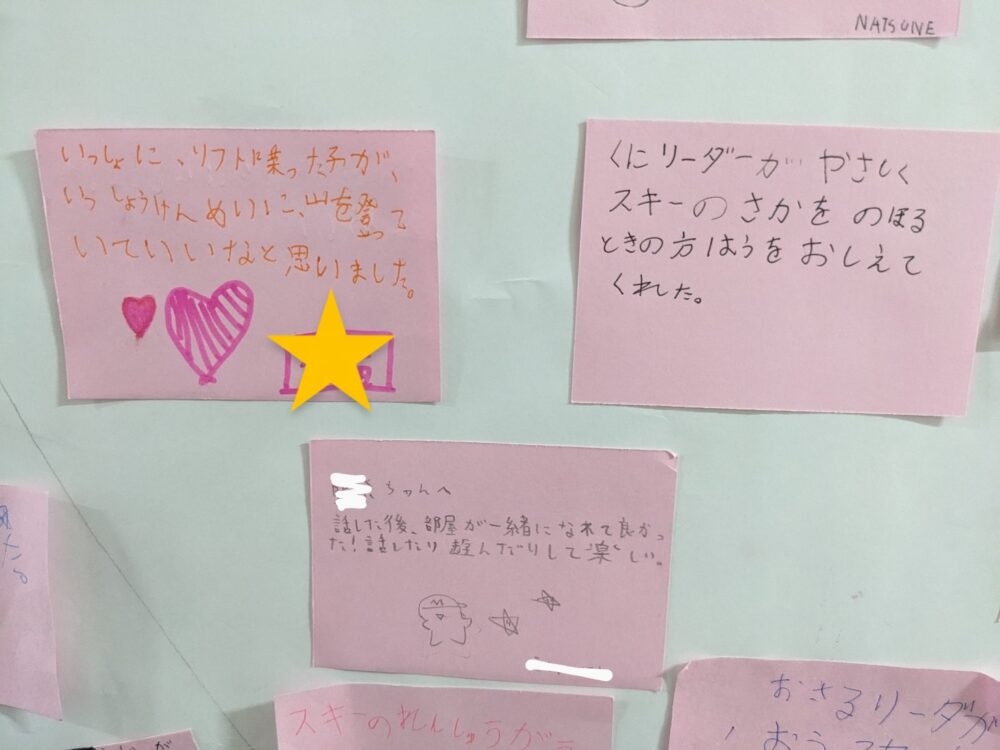 NATSUNE
いっしょに、リフト乗った子が、
いっしょうけんめいに、山を登って
いていいなと思いました。
くにリーダーが やさしく
スキーの さかを のぼる
ときの方 ほうを おしえて
くれた。
ちゃんへ
話した後、部屋が一緒になれて良かっ
た!話したり 遊んだりして楽しい。
スキーのれんしゅうが
おさるリーダーが